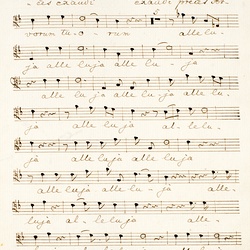 les exaudi exaudi preces ser-
vorum tu-o-rum alle lu-
ja alle luja alle lu-ja
alle luja alle lu-ja alle lu-
ja alle luja al-le lu-
ja alle luja alle lu-ja
alle luja alle lu-ja alle
luja al-leluja alle